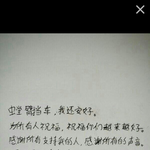 螳臂当车，我还安好。
为所有人祝福，祝福你们越来越好。
感谢所有支持我的人，感谢所有的声音。